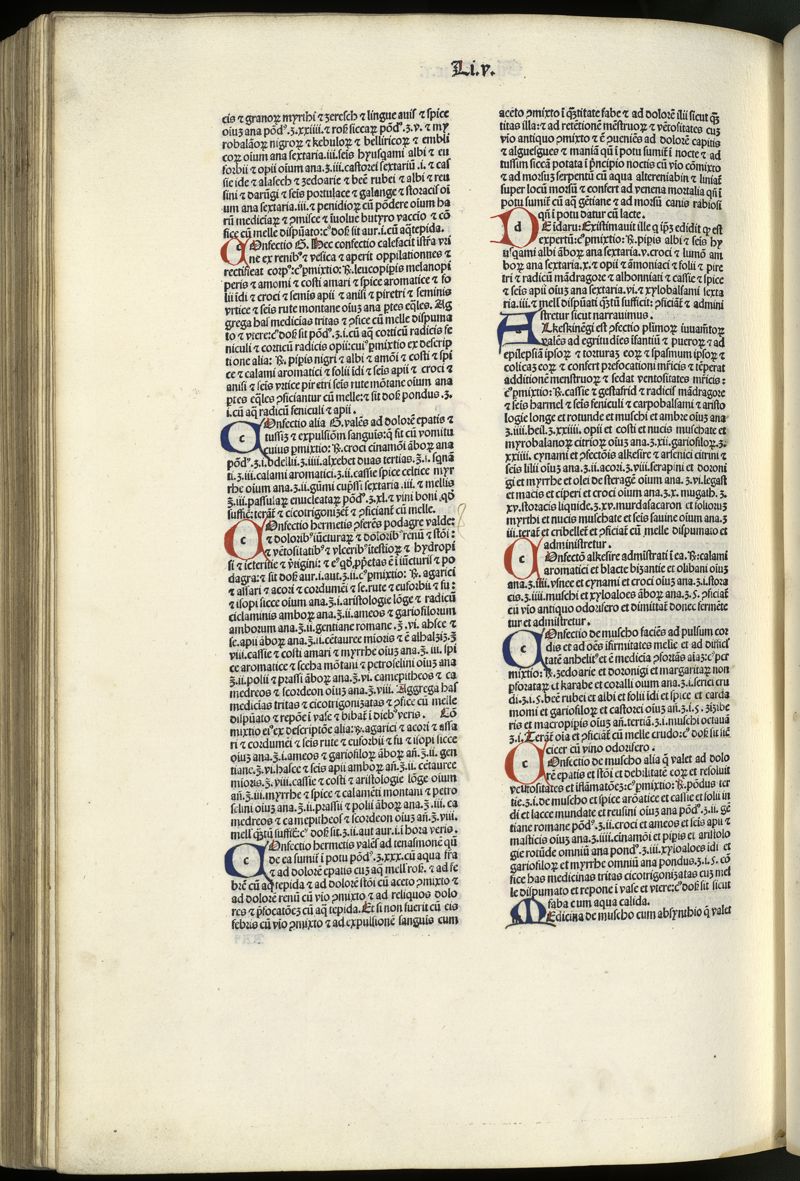 Li.v.
cis ⁊ granoꝝ myrthi ⁊ ʒeresch ⁊ lingue auis ⁊ spice
oiuʒ ana põdꝰ.ʒ.xxiiii.⁊ roſ siccaꝝ põdꝰ.ʒ.v. ⁊ my
robalãoꝝ nigroꝝ ⁊ kebuloꝝ ⁊ belliricoꝝ ⁊ embli
coꝝ oium ana sextaria.iii.seis hyusqami albi ⁊ eu
forbii ⁊ opii oium ana.ʒ.iii.castorei sextariũ.i.⁊ cas
sie ide ⁊ alasech ⁊ ʒedoarie ⁊ beẽ rubei ⁊ albi ⁊ reu
sini ⁊ darũgi ⁊ seis portulace ⁊ galange ⁊ storacis oi
um ana sextaria.iii.⁊ penidioꝝ cũ põdere oium ha
rũ mediciaꝝ ⁊ ꝯmisce ⁊ iuolue butyro vaccio ⁊ cõ
fice cũ melle dispũato:cꝰ doſ sit aur.i.cũ aq̃tepida.
COnfectio G. Hec confectio calefacit istra vri
ne ex renibꝰ ⁊ vesica ⁊ aperit oppilationnes ⁊
rectificat corpꝰ:cꝰ pmixtio:℞.leucopipis melanopi
peris ⁊ amomi ⁊ costi amari ⁊ spice aromatice ⁊ fo
lii idi ⁊ croci ⁊ semĩs apii ⁊ anisi ⁊ piretri ⁊ seminis
vrtice ⁊ seis rute montane oiuʒ ana ptes eq̃les. Ag
grega has medicias tritas ⁊ ꝯfice cũ melle dispuma
to ⁊ vtere:cꝰ doſ sit põdꝰ.ʒ.i.cũ aq̃ corticũ radicis fe
niculi ⁊ corticũ radicis opii:cuiꝰ pmixtio ex descrip
tione alia: ℞. pipis nigri ⁊ albi ⁊ amõi ⁊ costi ⁊ spi
ce ⁊ calami aromatici ⁊ folii idi ⁊ seis apii ⁊ croci ⁊
anisi ⁊ seis vrtice piretri seis rute mõtane oium ana
ptes eq̃les ꝯficiantur cũ melle:⁊ sit doſ pondus.ʒ.
i.cũ aq̃ radicũ feniculi ⁊ apii.
COnfectio alia G.valẽs ad dolorẽ epatis ⁊
tussiʒ ⁊ expulsiõm sanguis:q̃ fit cũ vomitu
cuius pmixtio: ℞. croci cinamõi ãboꝝ ana
põdꝰ.ʒ.i.bdellii.ʒ.iiii.alxebet duas tertias.ʒ.i.sqnã
ti.ʒ.iii.calami aromatici.ʒ.ii.cassie spice celtice myr
rhe oium ana.ʒ.ii.gũmi cupssi sextaria.iii.⁊ mellis
ʒ.iii.passulaꝝ enucleataꝝ põdꝰ.ʒ.xl.⁊ vini boni.qđ
sufficꝭ:terat᷑ ⁊ cicotrigonizet᷑ ⁊ ꝯficiant᷑ cũ melle.
COnfectio hermetis ꝯferẽs podagre valde:
⁊ doloribꝰ iũcturaꝝ ⁊ doloribꝰ renũ ⁊ stõi:
⁊ vẽtositatibꝰ ⁊ vlceribꝰ itestioꝝ ⁊ hydropi
si ⁊ ictericie ⁊ vtigini: ⁊ eꝰ qđ ppetas ẽ i iũcturis ⁊ po
dagra:⁊ sit doſ aur.i.aut.ʒ.ii.cꝰ pmixtio: ℞. agarici
⁊ assari ⁊ acori ⁊ cordumẽi ⁊ se.rute ⁊ euforbii ⁊ fu:
⁊ isopi sicce oium ana.ʒ.i.aristologie lõge ⁊ radicũ
ciclaminis amboꝝ ana.ʒ.ii.ameos ⁊ gariofilorum
amborum ana.ʒ.ii.gentiane romane.ʒ.vi.absce ⁊
se.apii ãboꝝ ana.ʒ.ii.cẽtauree mioris ⁊ ẽ albalʒiʒ.ʒ
viii.cassie ⁊ costi amari ⁊ myrrhe oiuʒ ana.ʒ.iii.spi
ce aromatice ⁊ secha mõtani ⁊ petroselini oiuʒ ana
ʒ.ii.polii ⁊ prassi ãboꝝ ana.ʒ.vi.camepitheos ⁊ ca
medreos ⁊ scordeon oiuʒ ana.ʒ.viii. Aggrega has
medicias tritas ⁊ cicotrigonizatas ⁊ ꝯfice cũ melle
dispũato ⁊ repõe i vase ⁊ bibat᷑ i diebꝰ veris. Cõ
mixtio eiꝰ ex descriptiõe alia:℞.agarici ⁊ acori ⁊ assa
ri ⁊ cordumẽi ⁊ seis rute ⁊ euforbii ⁊ fu ⁊ isopi sicce
oiuʒ ana.ʒ.i.ameos ⁊ gariofiloꝝ ãboꝝ añ.ʒ.ii.gen
tiane.ʒ.vi.hasce ⁊ seis apii amboꝝ añ.ʒ.ii.cẽtauree
mioris.ʒ.viii.cassie ⁊ costi ⁊ aristologie lõge oium
añ.ʒ.iii.myrrhe ⁊ spice ⁊ calamẽti montani ⁊ petro
selini oiuʒ ana.ʒ.ii.prassii ⁊ polii ãboꝝ ana.ʒ.iii.ca
medreos ⁊ camepitheos ⁊ scordeon oiuʒ añ.ʒ.viii.
mell q̃stũ sufficꝭ:cꝰ doſ sit.ʒ.ii.aut aur.i.i hora veris.
COnfectio hermetis valẽs ad tenasmonẽ qũ
de ea sumit᷑ i potu põdꝰ.ʒ.xxx.cũ aqua fr̃a
⁊ ad dolorẽ epatis cuʒ aq̃ mell roſ. ⁊ ad fe
brẽ cũ aq̃ tepida ⁊ ad dolorẽ stõi cũ aceto ꝯmixto ⁊
ad dolorẽ renũ cũ vio ꝯmixto ⁊ ad reliquos dolo
res ⁊ pfocatõeʒ cũ aq̃ tepida.Et si non fuerit cũ eis
febris cũ vio ꝯmixto ⁊ ad expulsionẽ sanguis cum
aceto ꝯmixto i q̃titate fabe ⁊ ad dolorẽ ilii sicut q̃
titas illa:⁊ ad retẽtionẽ mẽstruoꝝ ⁊ vẽtositates cuʒ
vio antiquo ꝯmixto ⁊ ẽ ꝓueniẽs ad dolorẽ capitis
⁊ alguesgues ⁊ maniã qñ i potu sumit᷑ i nocte ⁊ ad
tussim siccã potata i pncipio noctis cũ vio cõmixto
⁊ ad morsuʒ serpentũ cũ aqua altereniabin ⁊ liniat᷑
super locũ morsũ ⁊ confert ad venena mortalia qñ i
potu sumit᷑ cũ aq̃ gẽtiane ⁊ ad morsũ canis rabiosi
qñ i potu datur cũ lacte.
DEidaru:Existimauit ille q ipʒ edidit ꝙ est
expertũ:cꝰ pmixtio:℞.pipis albi ⁊ seis hy
usqami albi ãboꝝ ana sextaria.v.croci ⁊ lunõ am
boꝝ ana sextaria.x.⁊ opii ⁊ ãmoniaci ⁊ folii ⁊ pire
tri ⁊ radicũ mãdragore ⁊ albonniati ⁊ cassie ⁊ spice
⁊ seis apii oiuʒ ana sextaria.vi.⁊ xylobalsami sexta
ria.iii.⁊ mell dispũati q̃stũ sufficit:ꝯficiat᷑ ⁊ admini
stretur sicut narrauimus.
ALkeskinẽgi est ꝯfectio plimoꝝ iuuamẽtoꝝ
valẽs ad egritudies isantiũ ⁊ pueroꝝ ⁊ ad
epslepsiã ipsoꝝ ⁊ torturaʒ eoꝝ ⁊ spasmum ipsoꝝ ⁊
colicaʒ eoꝝ ⁊ confert prefocationi mr̃icis ⁊ tẽperat
additionẽ menstruoꝝ ⁊ sedat ventositates mr̃icis:
cꝰ pmixtio:℞.cassie ⁊ gestafrid ⁊ radicis mãdragore
⁊ seis harmel ⁊ seis feniculi ⁊ carpobalsami ⁊ aristo
logie longe et rotunde et muschi et ambre oiuʒ ana
ʒ.iiii.heil.ʒ.xxiiii.opii et costi et nucis muschate et
myrobalanoꝝ citrioꝝ oiuʒ ana.ʒ.xii.gariofiloꝝ.ʒ.
xxiiii.cynami et ꝯfectiõis alkesire et arsenici citrini ⁊
seis lilii oiuʒ ana.ʒ.ii.acori.ʒ.viii.serapini et doroni
gi et myrrhe et olei de steragẽ oium ana.ʒ.vi.legast
et macis et ciperi et croci oium ana.ʒ.x.mugath.ʒ.
xv.storacis liquide.ʒ.xv.murdasacaron et foliorus
myrthi et nucis muschate et seis sauine oium ana.ʒ
iii.terat᷑ et cribellet᷑ et ꝯficiat᷑ cũ melle dispumato et
administretur.
COnfectõ alkesire admistrati i ea.℞:calami
aromatici et blacte bizantie et olibani oiuʒ
ana.ʒ.iiii.vsnee et cynami et croci oiuʒ ana.ʒ.i.stora
cis.ʒ.iiii.muschi et xyloaloes ãboꝝ ana.ʒ.ꞩ.ꝯficiat᷑
cũ vio antiquo odorifero et dimittat᷑ donec fermẽte
tur et admistretur.
COnfectio de muscho faciẽs ad pulsum cor
dis et ad oẽs ifirmitates melie et ad diffici
tatẽ anhelitꝰ et ẽ medicia ꝯfortãs aiaʒ:cꝰ per
mixtio:℞.ʒedoarie et doronigi et margaritaꝝ non
pforataꝝ et karabe et coralli oium ana.ʒ.i.serici cru
di.ʒ.i.ꞩ.beẽ rubei et albi et folii idi et spice et carda
momi et gariofiloꝝ et castorei oiuʒ añ.ʒ.i.ꞩ.ʒiʒibe
ris et macropipis oiuʒ añ.tertiã.ʒ.i.muschi octauã
ʒ.i.Terat᷑ oia et ꝯficiat᷑ cũ melle crudo:cꝰ doſ sit siẽ
cicer cũ vino odorifero.
COnfectio de muscho alia q̃ valet ad dolo
rẽ epatis et stõi et debilitatẽ eoꝝ et resoluit
vẽtositates et iflãmatõeʒ:cꝰ pmixtio:℞.põdus ter
tie.ʒ.i.de muscho et spice arõatice et cassie et folii in
di et lacce mundate et reusini oiuʒ ana põdꝰ.ʒ.ii.gẽ
tiane romane põdꝰ.ʒ.ii.croci et ameos et seis apii ⁊
masticis oiuʒ ana.ʒ.iiii.cinamõi et pipis et aristolo
gie rotũde omniũ ana pondꝰ.ʒ.iii.xyloaloes idi et
gariofiloꝝ et myrrhe omniũ ana pondus.ʒ.i.ꞩ.cõ
fice has medicinas tritas cicotrigonizatas cuʒ mel
le dispumato et repone i vase et vtere:cꝰ doſ sit sicut
faba cum aqua calida.
MEdicina de muscho cum absynthio q̃ valet